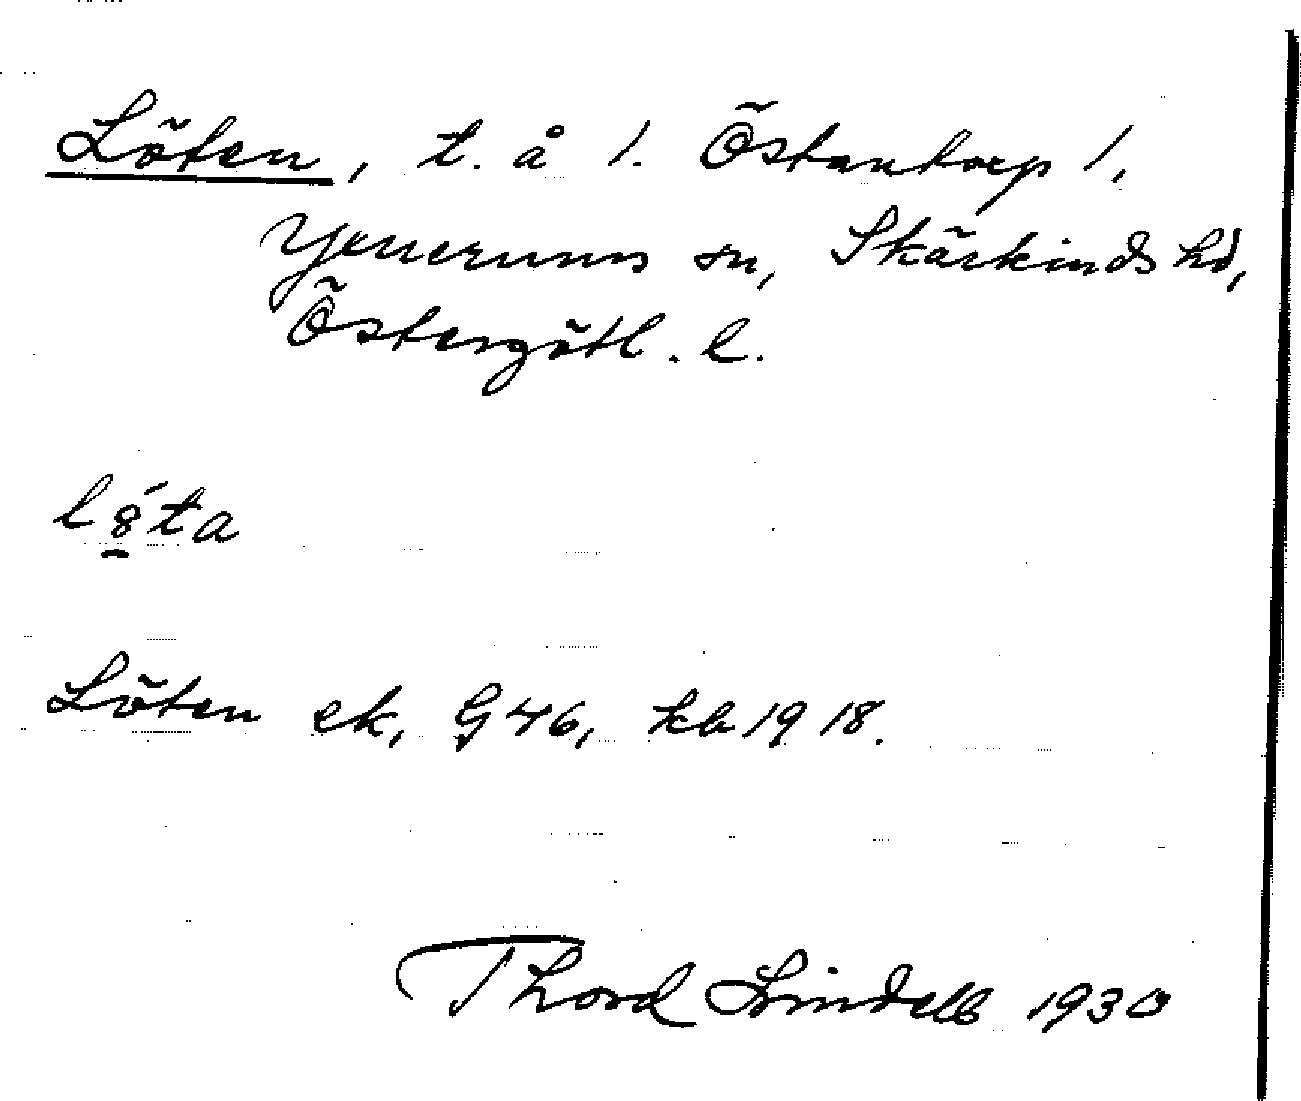 Löten, t. å 1. Östantorp 1,
Yxnerums sn, Skärkinds hd,
Östergötl. l.
l8́ta
Löten ek, G46, kb 1918.
Thord Lindell 1930